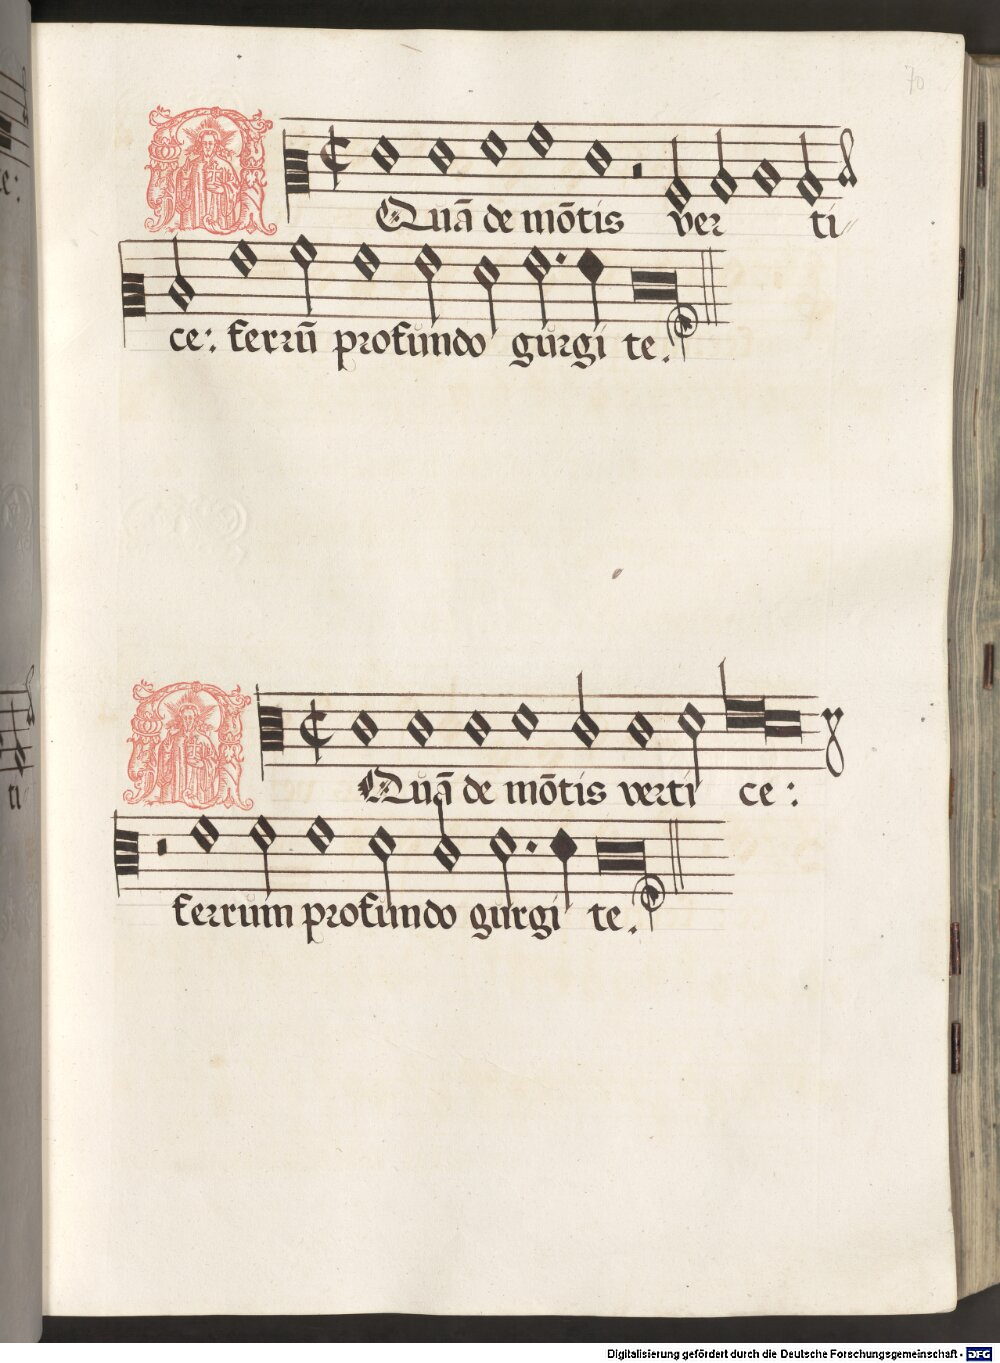 70
Quā de mōtis ver ti
ce: ferrū profundo gurgi te.
Quā de mōtis verti ce:
ferrum profundo gurgi te.
Digitalisierung gefördert durch die Deutsche Forschungsgemeinschaft - DFG